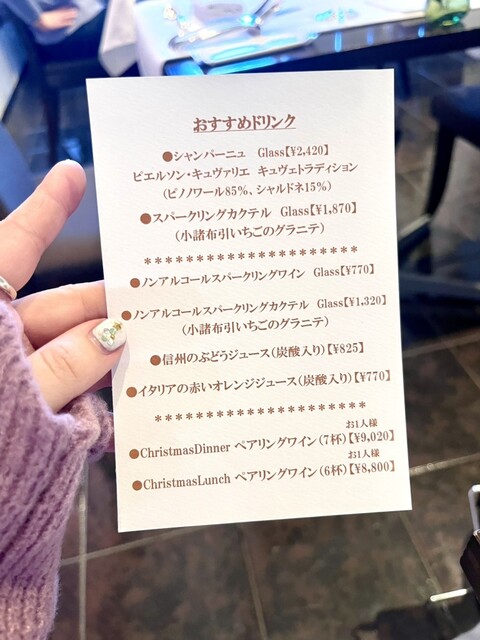 おすすめドリンク
●シャンパーニュ Glass【¥2,420】
ピエルソン・キュヴァリエ キュヴェトラディション
(ピノノワール85%、シャルドネ15%)
●スパークリングカクテル Glass【¥1,870】
(小諸布引いちごのグラニテ)
*********************
●ノンアルコールスパークリングワイン Glass【¥770】
●ノンアルコールスパークリングカクテル Glass【¥1,320】
(小諸布引いちごのグラニテ)
●信州のぶどうジュース(炭酸入り)【¥825】
●イタリアの赤いオレンジジュース(炭酸入り)【¥770】
*********************
お1人様
●ChristmasDinner ペアリングワイン(7杯)【¥9,020】
お1人様
●ChristmasLunch ペアリングワイン(6杯)【¥8,800】